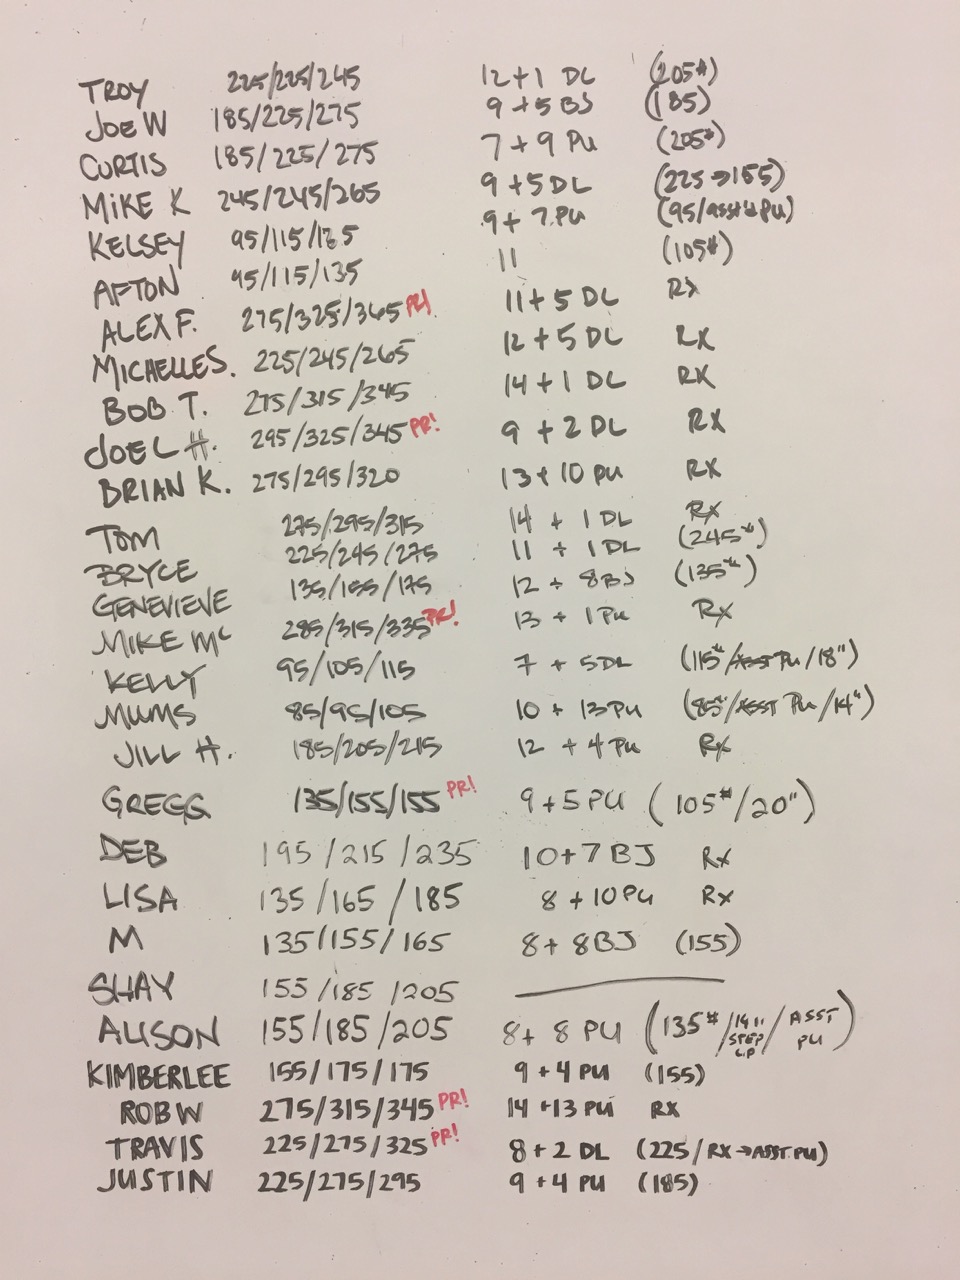 TROY 225/225/245 12+1 DL (205#)
JOE W 185/225/275 9+5 BJ (185)
CURTIS 185/225/275 7+9 PU (205#)
MIKE K 245/245/265 9+5DL (225→155)
KELSEY 95/115/125 9+7 PU (95/ASST'd PU)
AFTON 95/115/135 11 (105#)
ALEX F. 275/325/365 PR! 11+5 DL RX
MICHELLE S. 225/245/265 12+5 DL RX
BOB T. 275/315/345 14+1 DL RX
JOEL H. 295/325/345 PR! 9+2 DL RX
BRIAN K. 275/295/320 13+10 PU RX
TOM 275/295/315 14+1DL RX
BRYCE 225/245/275 11+1DL (245#)
GENEVIEVE 135/155/175 12+8BJ (135#)
MIKE Mc 285/315/335 PR! 13+1PU RX
KELLY 95/105/115 7+5DL (115#/ASST PU/18")
MUMS 85/95/105 10+13PU (85#/ASST PU/14")
JILL H. 185/205/215 12+4PU RX
GREGG 135/155/155 PR! 9+5 PU (105#/20")
DEB 195/215/235 10+7 BJ RX
LISA 135/165/185 8+10PU RX
M 135/155/165 8+8BJ (155)
SHAY 155/185/205
ALISON 155/185/205 8+8 PU (135#/14" STEP UP/ASST PU)
KIMBERLEE 155/175/175 9+4 PU (155)
ROB W 275/315/345 PR! 14+13 PU RX
TRAVIS 225/275/325 PR! 8+2 DL (225/RX→ASST.PU)
JUSTIN 225/275/295 9+4 PU (185)